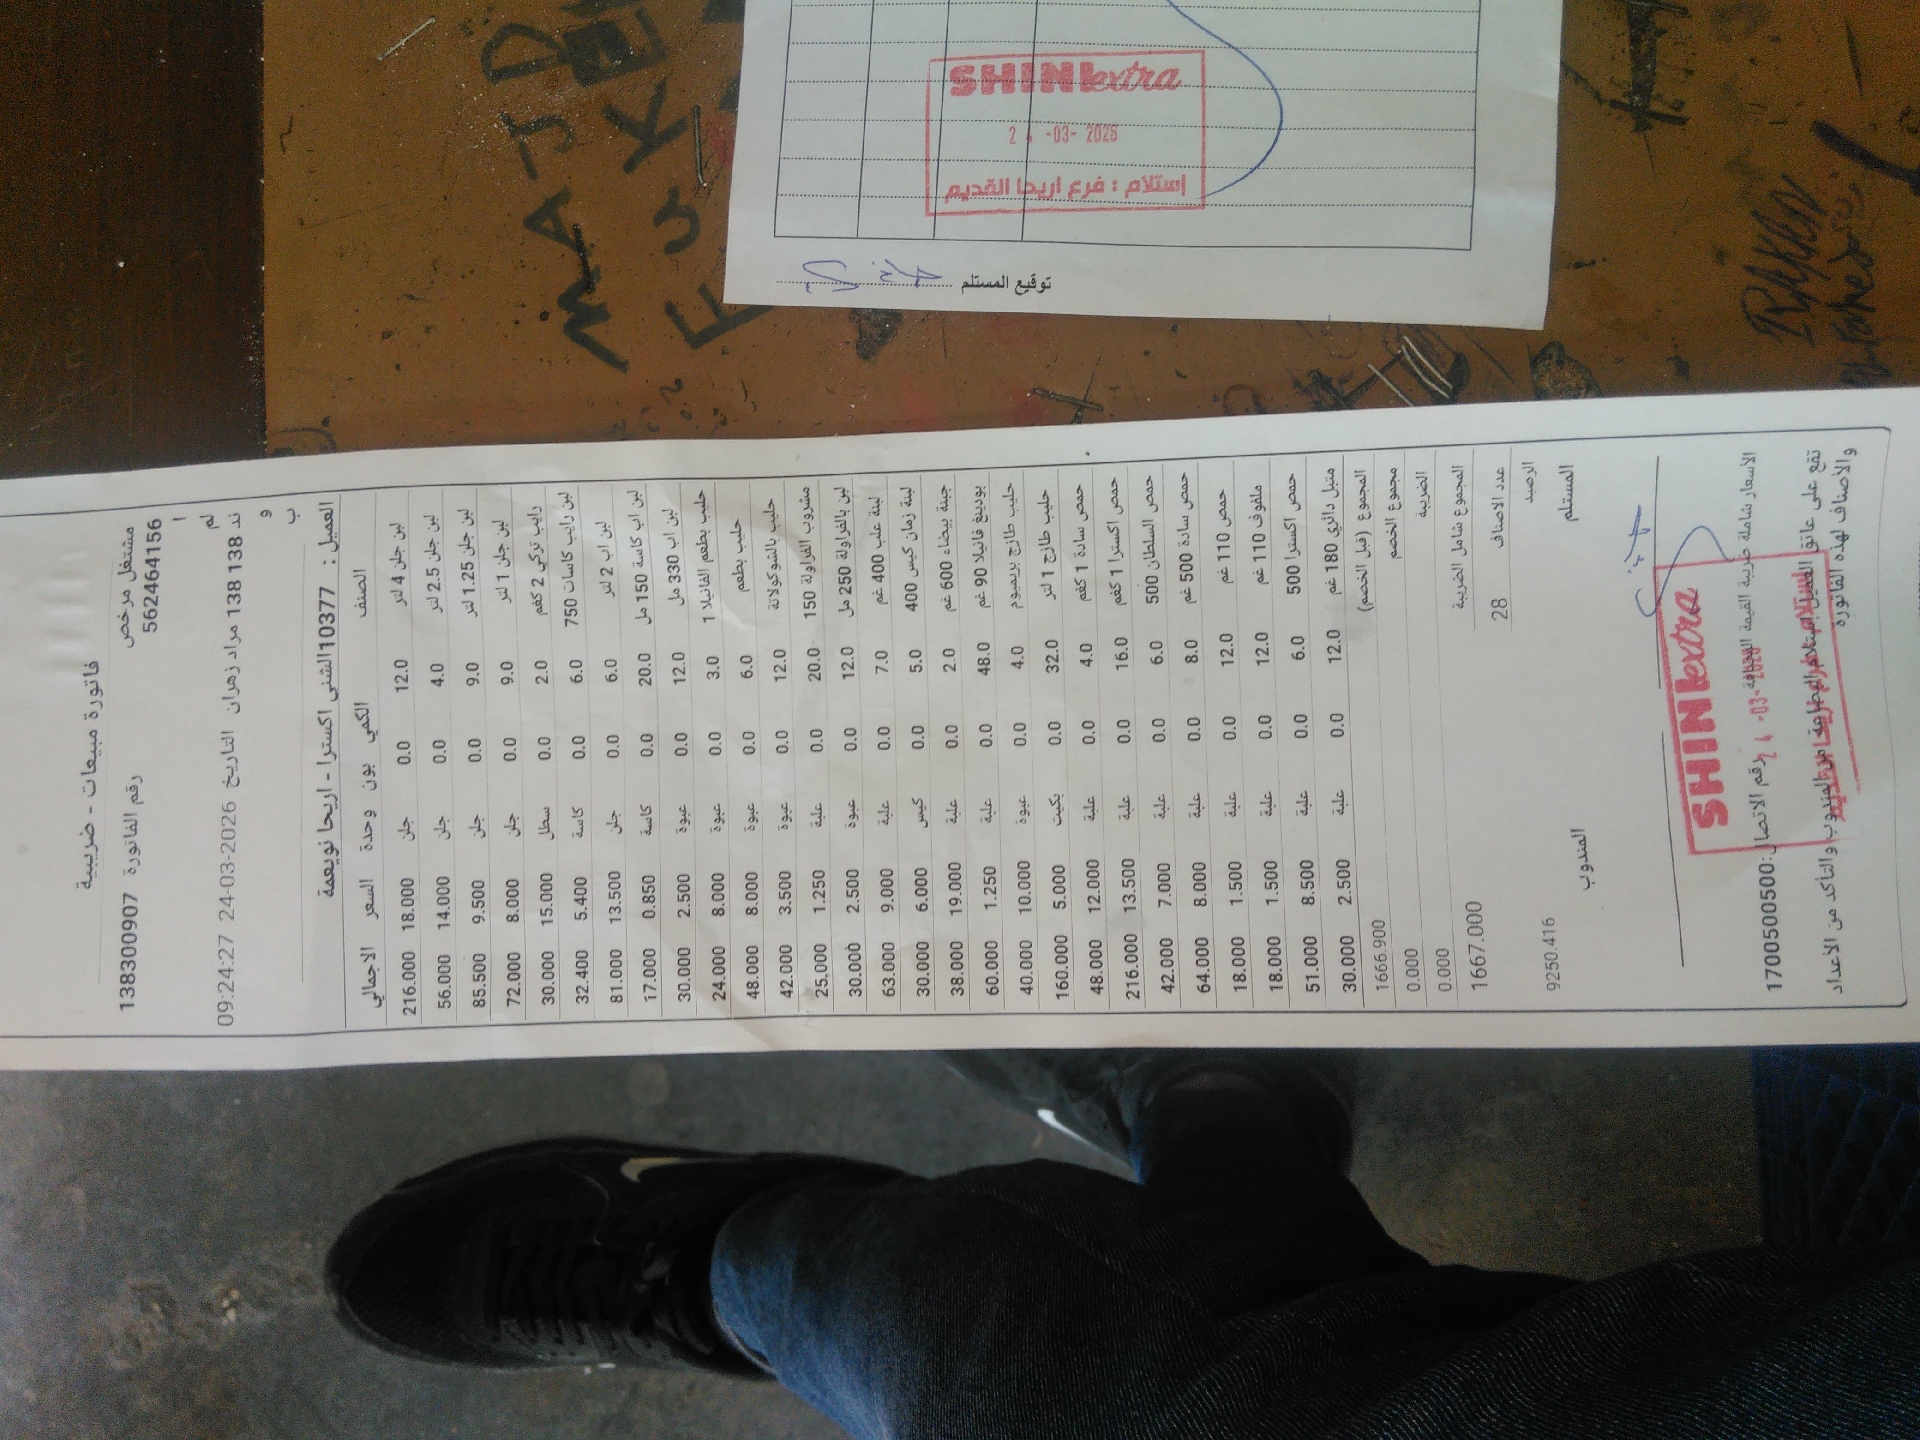 فاتورة مبيعات - ضريبية
مشتغل مرخص 562464156 رقم الفاتورة 138300907
ند 138 138 مراد زهران التاريخ 24-03-2026 09:24:27
العميل : 10377الشني اكسترا - اريحا نويعمة
الصنف الكمي بون وحدة السعر الاجمالي
لبن جلن 4 لتر 12.0 0.0 جلن 18.000 216.000
لبن جلن 2.5 لتر 4.0 0.0 جلن 14.000 56.000
لبن جلن 1.25 لتر 9.0 0.0 جلن 9.500 85.500
لبن جلن 1 لتر 9.0 0.0 جلن 8.000 72.000
رايب تركي 2 كغم 2.0 0.0 سطل 15.000 30.000
لبن رايب كاسات 750 6.0 0.0 كاسة 5.400 32.400
لبن اب 2 لتر 6.0 0.0 جلن 13.500 81.000
لبن اب كاسة 150 مل 20.0 0.0 كاسة 0.850 17.000
لبن اب 330 مل 12.0 0.0 عبوة 2.500 30.000
حليب بطعم الفانيلا 1 3.0 0.0 عبوة 8.000 24.000
حليب بطعم 6.0 0.0 عبوة 8.000 48.000
حليب بالشوكولاتة 12.0 0.0 عبوة 3.500 42.000
مشروب الفراولة 150 20.0 0.0 علبة 1.250 25.000
لبن بالفراولة 250 مل 12.0 0.0 عبوة 2.500 30.000
لبنة علب 400 غم 7.0 0.0 علبة 9.000 63.000
لبنة زمان كيس 400 5.0 0.0 كيس 6.000 30.000
جبنة بيضاء 600 غم 2.0 0.0 علبة 19.000 38.000
بودينغ فانيلا 90 غم 48.0 0.0 علبة 1.250 60.000
حليب طازج بريميوم 4.0 0.0 عبوة 10.000 40.000
حليب طازج 1 لتر 32.0 0.0 بكيت 5.000 160.000
حمص سادة 1 كغم 4.0 0.0 علبة 12.000 48.000
حمص اكسترا 1 كغم 16.0 0.0 علبة 13.500 216.000
حمص السلطان 500 6.0 0.0 علبة 7.000 42.000
حمص سادة 500 غم 8.0 0.0 علبة 8.000 64.000
حمص 110 غم 12.0 0.0 علبة 1.500 18.000
ملفوف 110 غم 12.0 0.0 علبة 1.500 18.000
حمص اكسترا 500 6.0 0.0 علبة 8.500 51.000
متبل دائري 180 غم 12.0 0.0 علبة 2.500 30.000
المجموع (قبل الخصم) 1666.900
مجموع الخصم 0.000
الضريبة 0.000
المجموع شامل الضريبة 1667.000
عدد الاصناف 28
الرصيد 9250.416
المستلم المندوب
SHINI extra
الأسعار شاملة ضريبة القيمة المضافة رقم الاتصال:1700500500
تقع على عاتق العميل استلام البضاعة من المندوب والتأكد من الاعداد
والأصناف لهذه الفاتورة
SHINI extra
-03- 2026
إستلام : فرع اريحا القديم
توقيع المستلم
MAJD
RAKAN